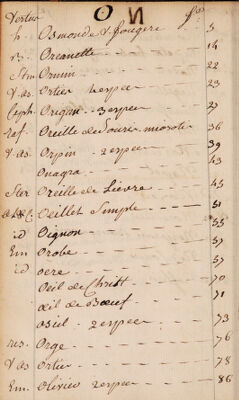 Vertus O N fos
h. Osmonde V. fougere 5
R. Orcanette 14
Stm Ormin 22
V. as. Ortier 2 espece 23
Ceph. Origan 3 espece 29
ref. Oreille de Souris 36
V. as. Orpin 2 espece 39
Onagra 43
Ster Oreille de Lievre 45
Oeillet Simple 51
id Oignon 55
Em Orobe 57
id ocre 55
Oeil de Christ 70
oeil de Boeuf 71
osiel 2 espece 73
res. Orge 76
V. as Ortie 78
Em. Olivier 2 espece 86